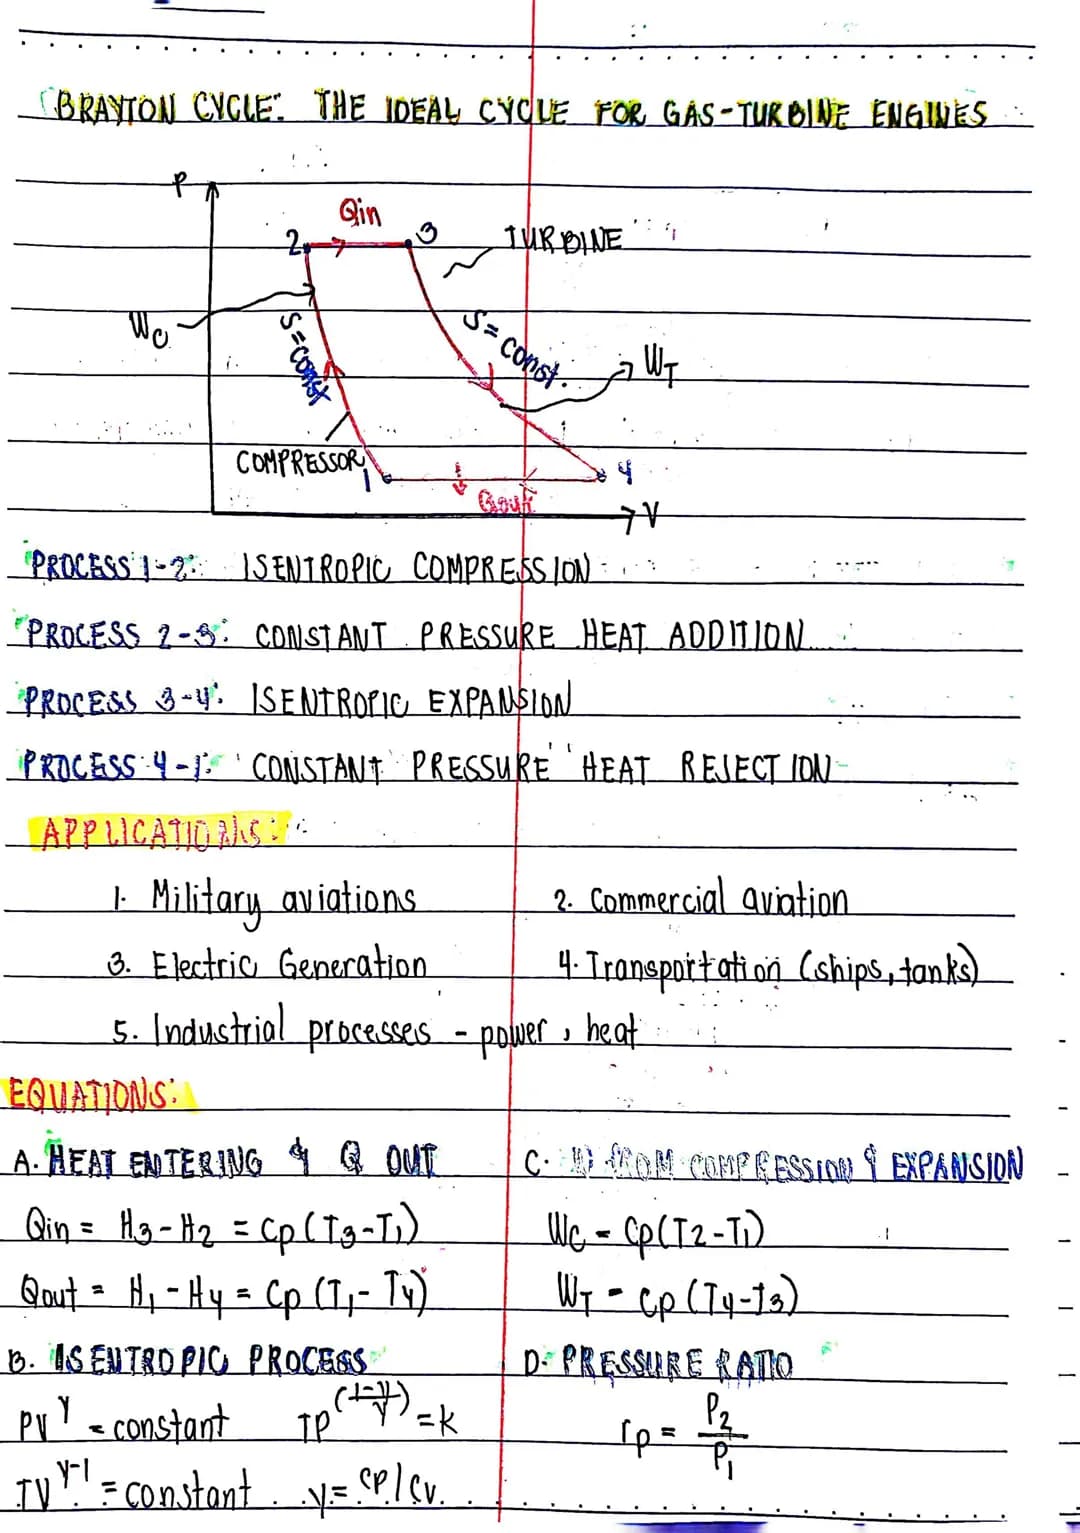 BRAYTON CYCLE: THE IDEAL CYCLE FOR GAS-TURBINE ENGINES
P
Qin
2
3
TURBINE
Wc
S=const
S=const.
WT
COMPRESSOR
1
4
Qout
V
PROCESS 1-2: ISENTROPIC COMPRESSION
PROCESS 2-3: CONSTANT PRESSURE HEAT ADDITION
PROCESS 3-4: ISENTROPIC EXPANSION
PROCESS 4-1: CONSTANT PRESSURE HEAT REJECTION
APPLICATIONS:
1. Military aviations
2. Commercial aviation
3. Electric Generation
4. Transportation (ships, tanks)
5. Industrial processes - power, heat
EQUATIONS:
A. HEAT ENTERING & Q OUT
Qin = H3-H2 = Cp(T3-T1)
Qout = H1-H4 = Cp (T1-T4)
B. ISENTROPIC PROCESS
PV^γ = constant TP^((1-γ)/γ) = k
TV^(γ-1) = constant . γ = CP/Cv.
C. W FROM COMPRESSION & EXPANSION
Wc = Cp(T2-T1)
WT = Cp (T4-T3)
D. PRESSURE RATIO
rp = P2/P1